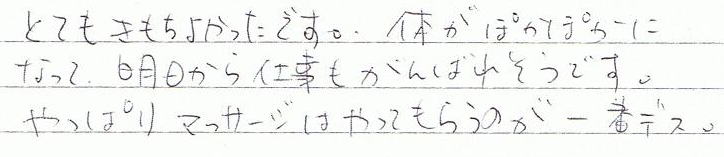 とてもきもちよかったです。. 体がぽかぽかーに
なって、明日から仕事もがんばれそうです。
やっぱり マッサージはやってもらうのが一番デス。